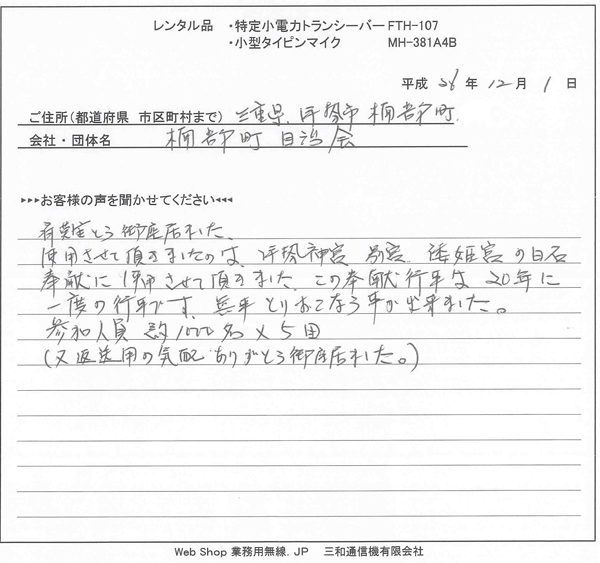 レンタル品 ・特定小電力トランシーバー FTH-107
・小型タイピンマイク MH-381A4B
平成 28 年 12 月 1 日
ご住所(都道府県 市区町村まで) 三重県 伊勢市 楠部町
会社・団体名 楠部町 自治会
▸▸▸お客様の声を聞かせてください◂◂◂
有難とう御座居ました。
使用させて頂きましたのは、伊勢神宮 別宮 倭姫宮の白石
奉献に使用させて頂きました。この奉献行事は 20年に
一度の行事です。無事とりおこなう事が出来ました。
参加人員 約1000名×5回
(又返送用の気配ありがとう御座居ました。)
Web Shop 業務用無線.JP 三和通信機有限会社